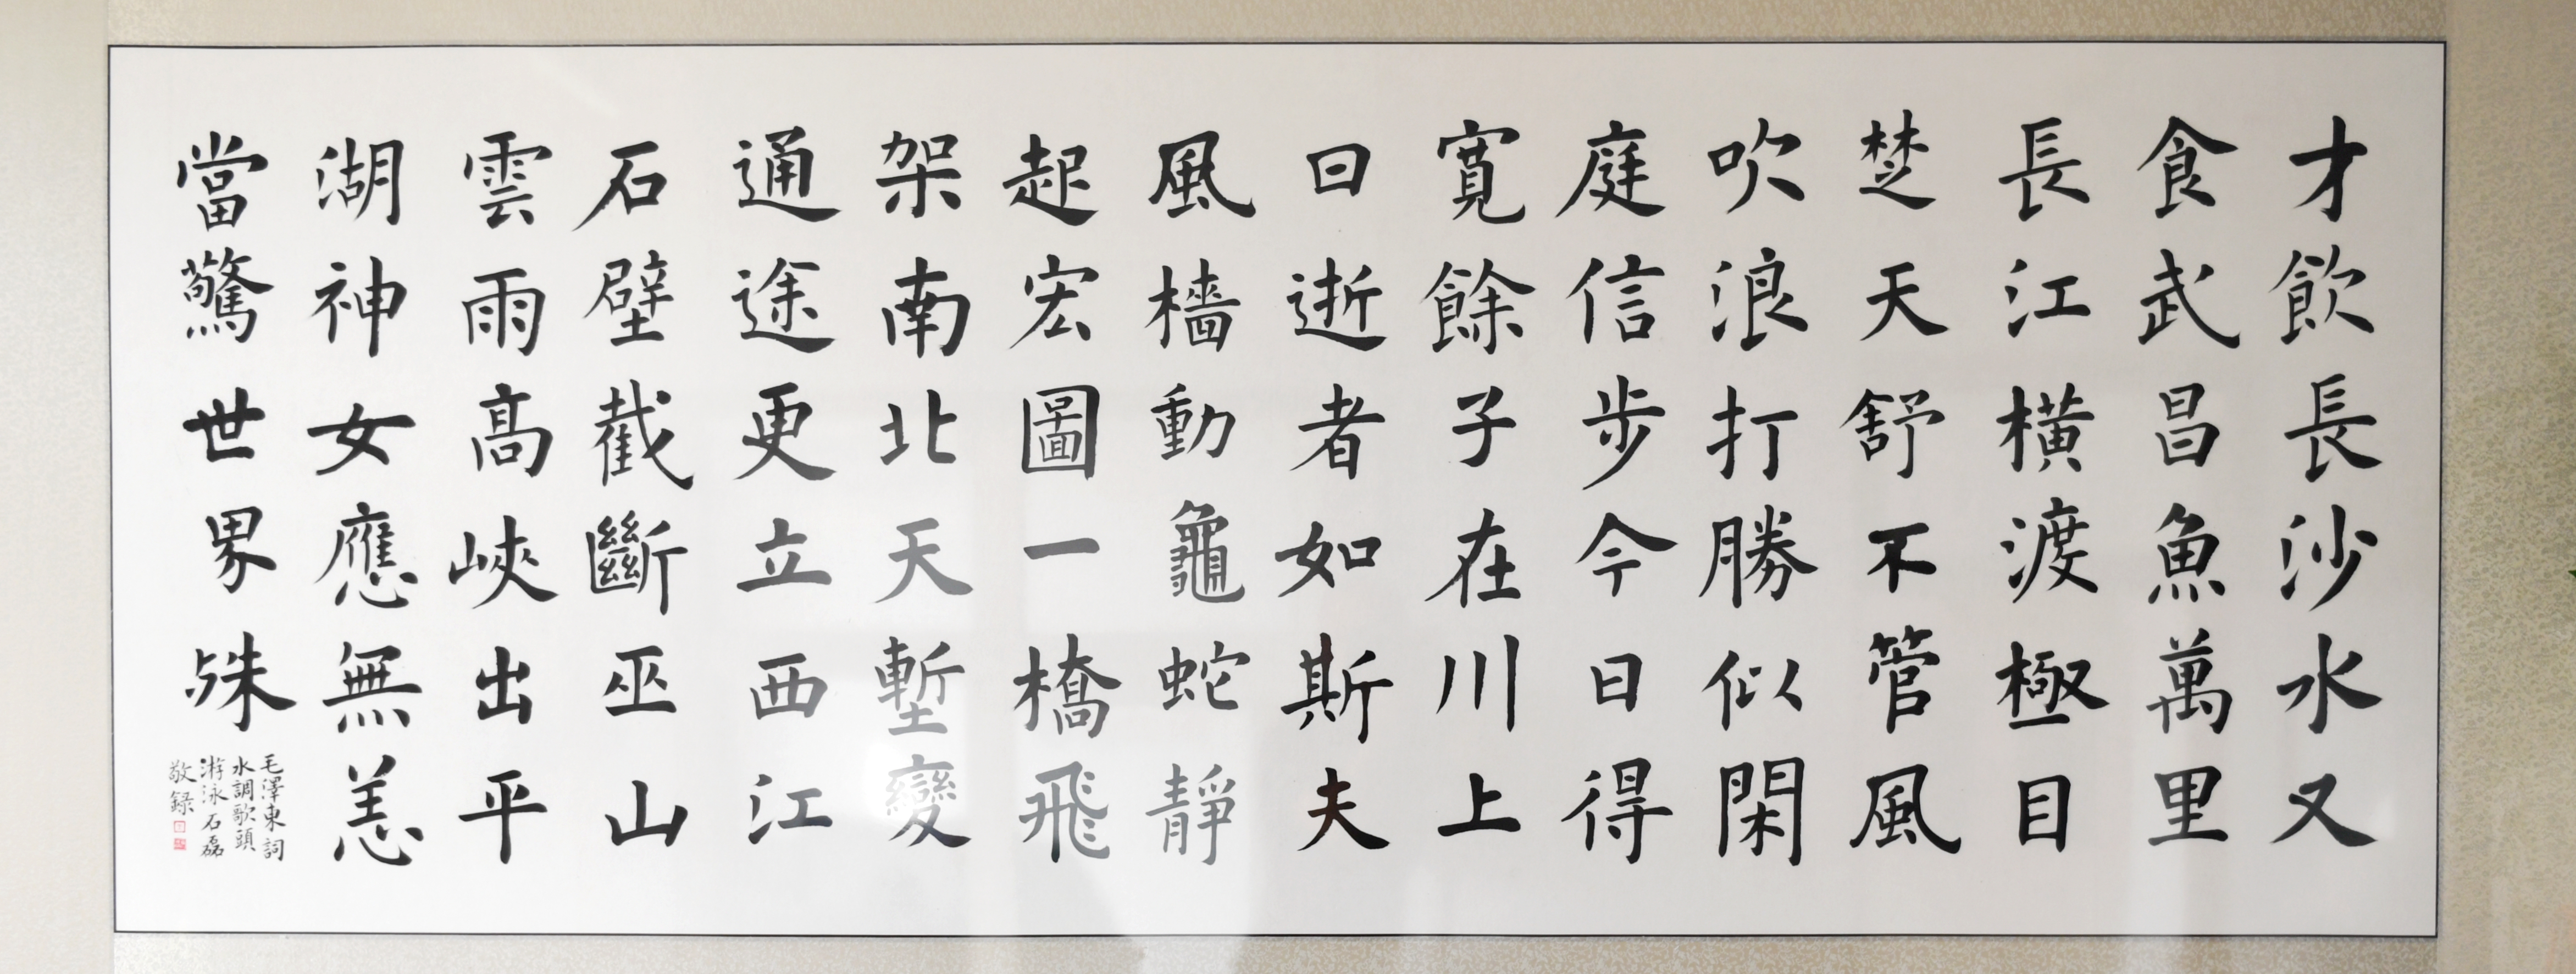 才飲長沙水又
食武昌魚萬里
長江橫渡極目
楚天舒不管風
吹浪打勝似閑
庭信步今日得
寬餘子在川上
曰逝者如斯夫
風檣動龜蛇靜
起宏圖一橋飛
架南北天塹變
通途更立西江
石壁截斷巫山
雲雨高峽出平
湖神女應無恙
當驚世界殊
毛澤東詞
水調歌頭
游泳石磊
敬録